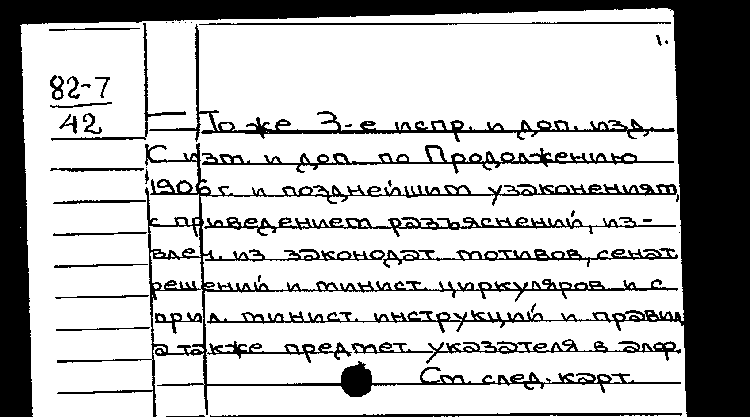 1.
82-7
42
— То же 3-е испр. и доп. изд.
С изм. и доп. по Продолжению
1906 г. и позднейшим узаконениям,
с приведением разъяснений, из-
влеч. из законодат. мотивов, сенат.
решений и минист. циркуляров и с
прил. минист. инструкций и правил
а также предмет. указателя в алф.
См. след. карт.